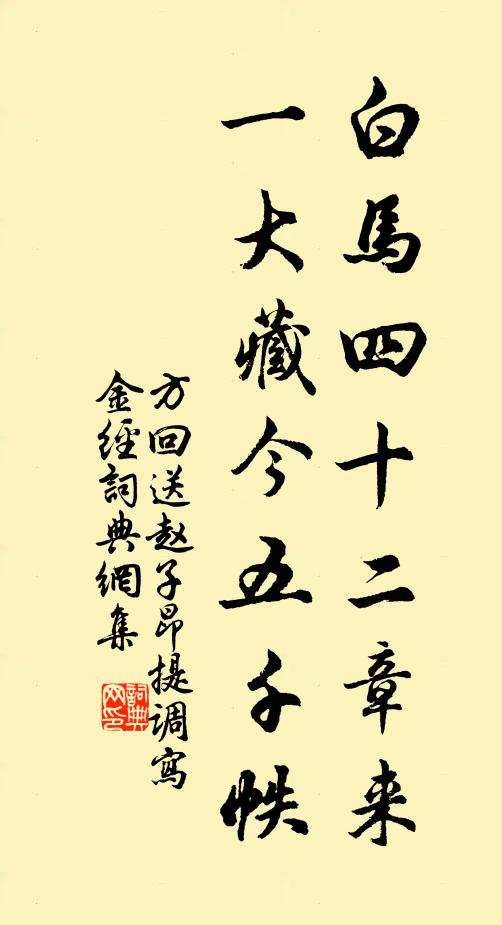 白馬四十二章来
一大藏今五千帙
方回送赵子昂提调寫
金經詞典網集
詞典网印